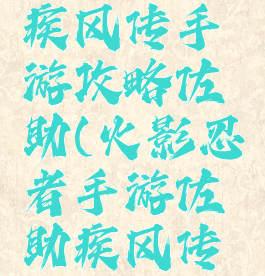 疾风传手
游攻略佐
助(火影忍
者手游佐
助疾风传